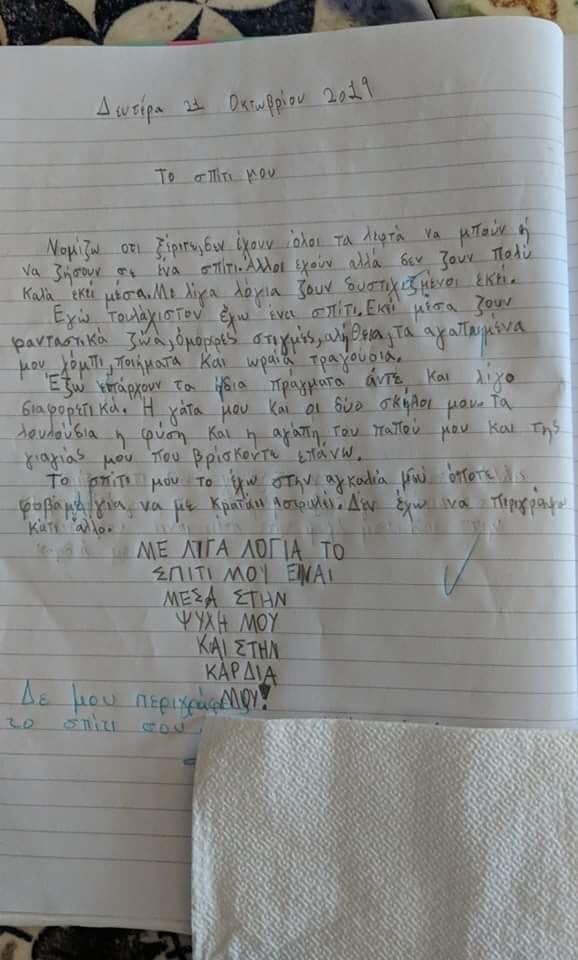 Δευτέρα 21 Οκτωβρίου 2019
Το σπίτι μου
Νομίζω οτι ξέριτε, δεν έχουν όλοι τα λιφτά να μπούν ή
να ζήσουν σε ένα σπίτι. Άλλοι έχούν αλλά δεν ζουν πολύ
καλά εκεί μέσα. Με λίγα λόγια ζουν δυστιχιζμένοι εκεί.
Εγώ τουλάχιστον έχω ένα σπίτι. Εκεί μέσα ζουν
φανταστικά ζώα, όμορφες στιγμές, αλήθεια, τα αγαπημένα
μου χόμπι, ποιήματα και ωραία τραγούδια.
Έξω υπάρχουν τα ίδια πράγματα άντε και λίγο
διαφορετικά. Η γάτα μου και οι δύο σκήλοι μου. Τα
λουλούδια η φύση και η αγάπη του παπού μου και της
γιαγιάς μου που βρίσκοντε επάνω.
Το σπίτι μου το έχω στην αγκαλιά μου όποτε
φοβάμε για να με κρατάει Δεν έχω να περιγράψω
κάτι άλλο.
ΜΕ ΛΙΓΑ ΛΟΓΙΑ ΤΟ
ΣΠΙΤΙ ΜΟΥ ΕΙΝΑΙ
ΜΕΣΑ ΣΤΗΝ
ΨΥΧΗ ΜΟΥ
ΚΑΙ ΣΤΗΝ
ΚΑΡΔΙΑ
ΜΟΥ!
Δε μου περιγράφεις
το σπίτι σου